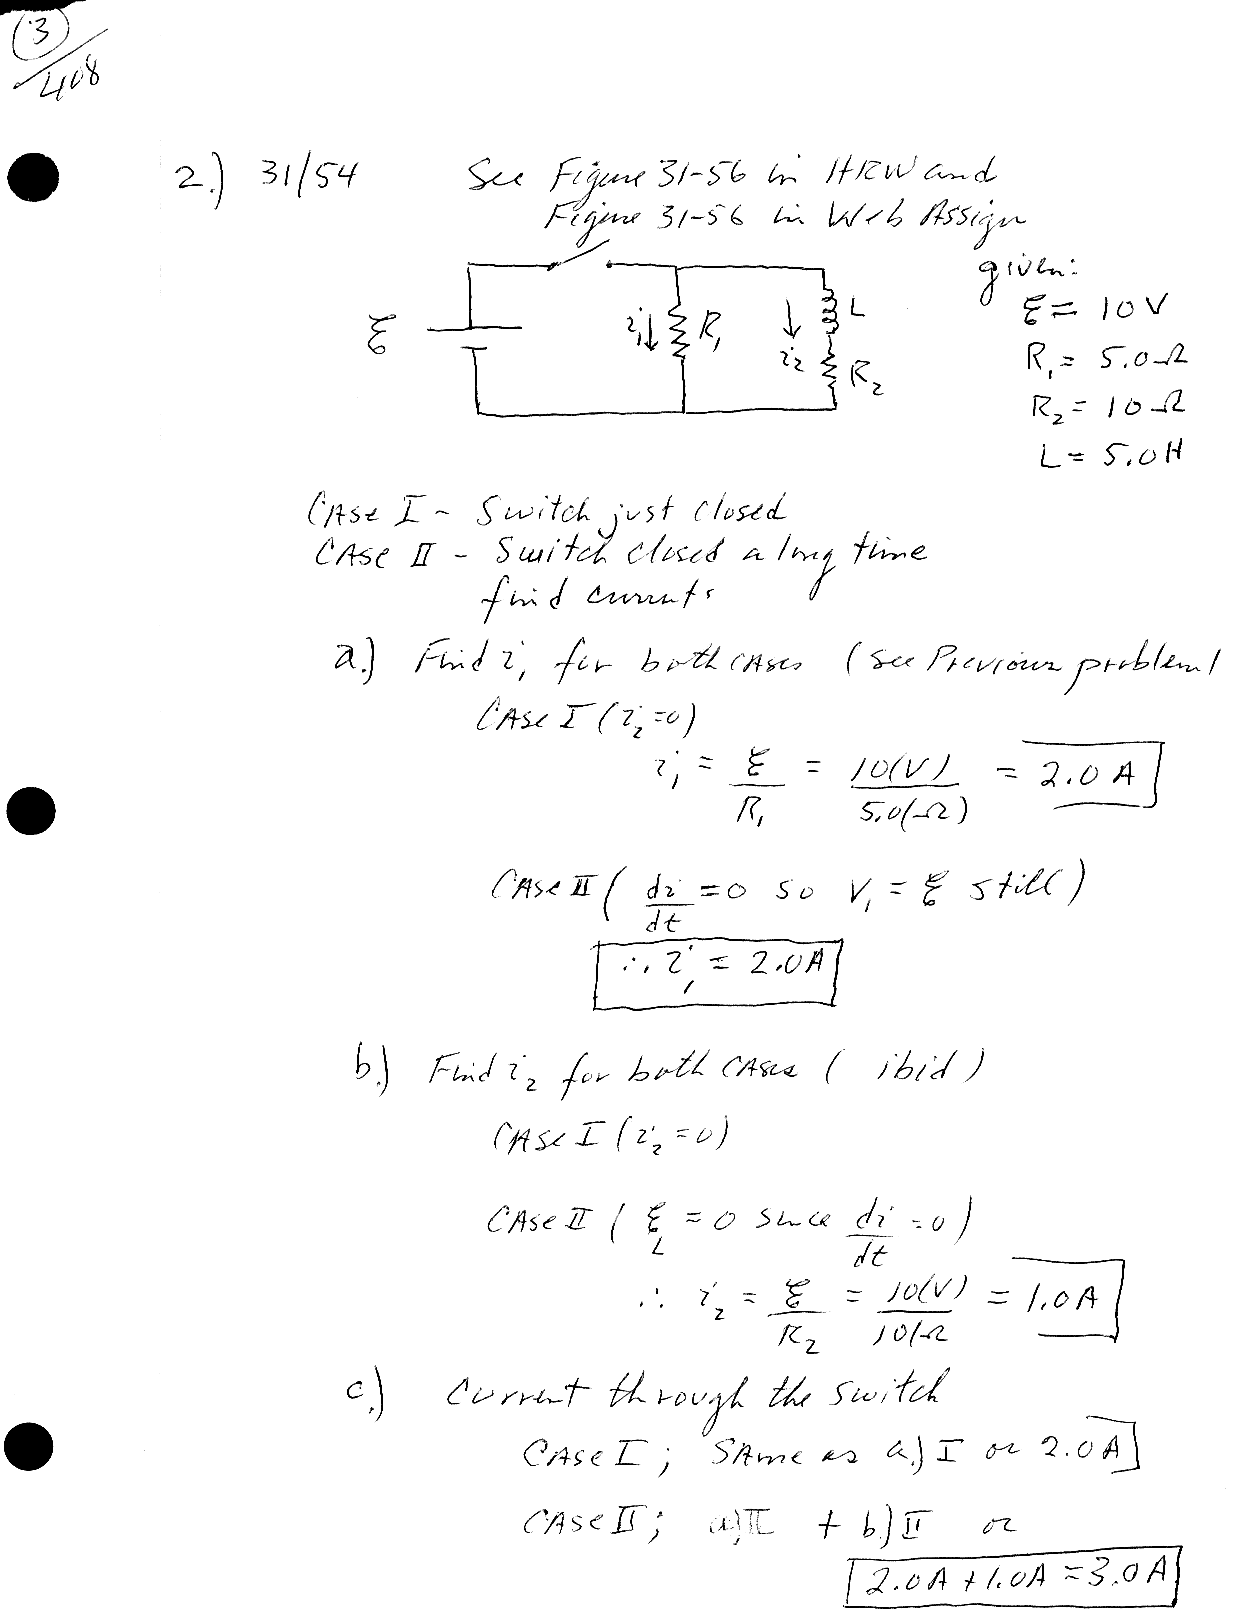 3
/408
2.) 31/54 See Figure 31-56 in HRW and
Figure 31-56 in Web Assign
given:
ℰ = 10V
R₁ = 5.0Ω
R₂ = 10Ω
L = 5.0H
ℰ
i₁↓ R₁
↓ i₂
L
R₂
CASE I - Switch just closed
CASE II - Switch closed a long time
find currents
a.) Find i₁ for both cases (See Previous problem)
CASE I (i₂=0)
i₁ = ℰ/R₁ = 10(V)/5.0(Ω) = 2.0 A
CASE II (di/dt = 0 so V₁ = ℰ still)
∴ i₁ = 2.0A
b.) Find i₂ for both cases (ibid)
CASE I (i₂=0)
CASE II (ℰ_L = 0 since di/dt = 0)
∴ i₂ = ℰ/R₂ = 10(V)/10(Ω = 1.0A
c.) Current through the switch
CASE I; SAme as a.) I or 2.0A
CASE II; a)II + b.) II or
2.0A + 1.0A = 3.0A